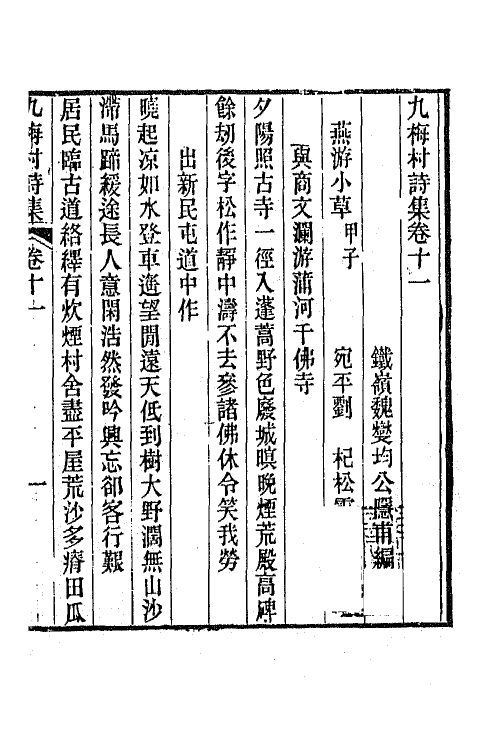 九梅村詩集卷十一
鐵嶺魏燮均公隱甫編
燕游小草 甲子 宛平劉 杞松
與商文瀾游蒲河千佛寺
夕陽照古寺一徑入蓬蒿野色廢城暝晚煙荒殿高碑
餘刼後字松作靜中濤不去參諸佛休令笑我勞
出新民屯道中作
曉起涼如水登車遙望閒遠天低到樹大野濶無山沙
滯馬蹄緩途長人意閑浩然發吟興忘卻客行艱
居民臨古道絡繹有炊煙村舍盡平屋荒沙多瘠田瓜
九梅村詩集 卷十一 一